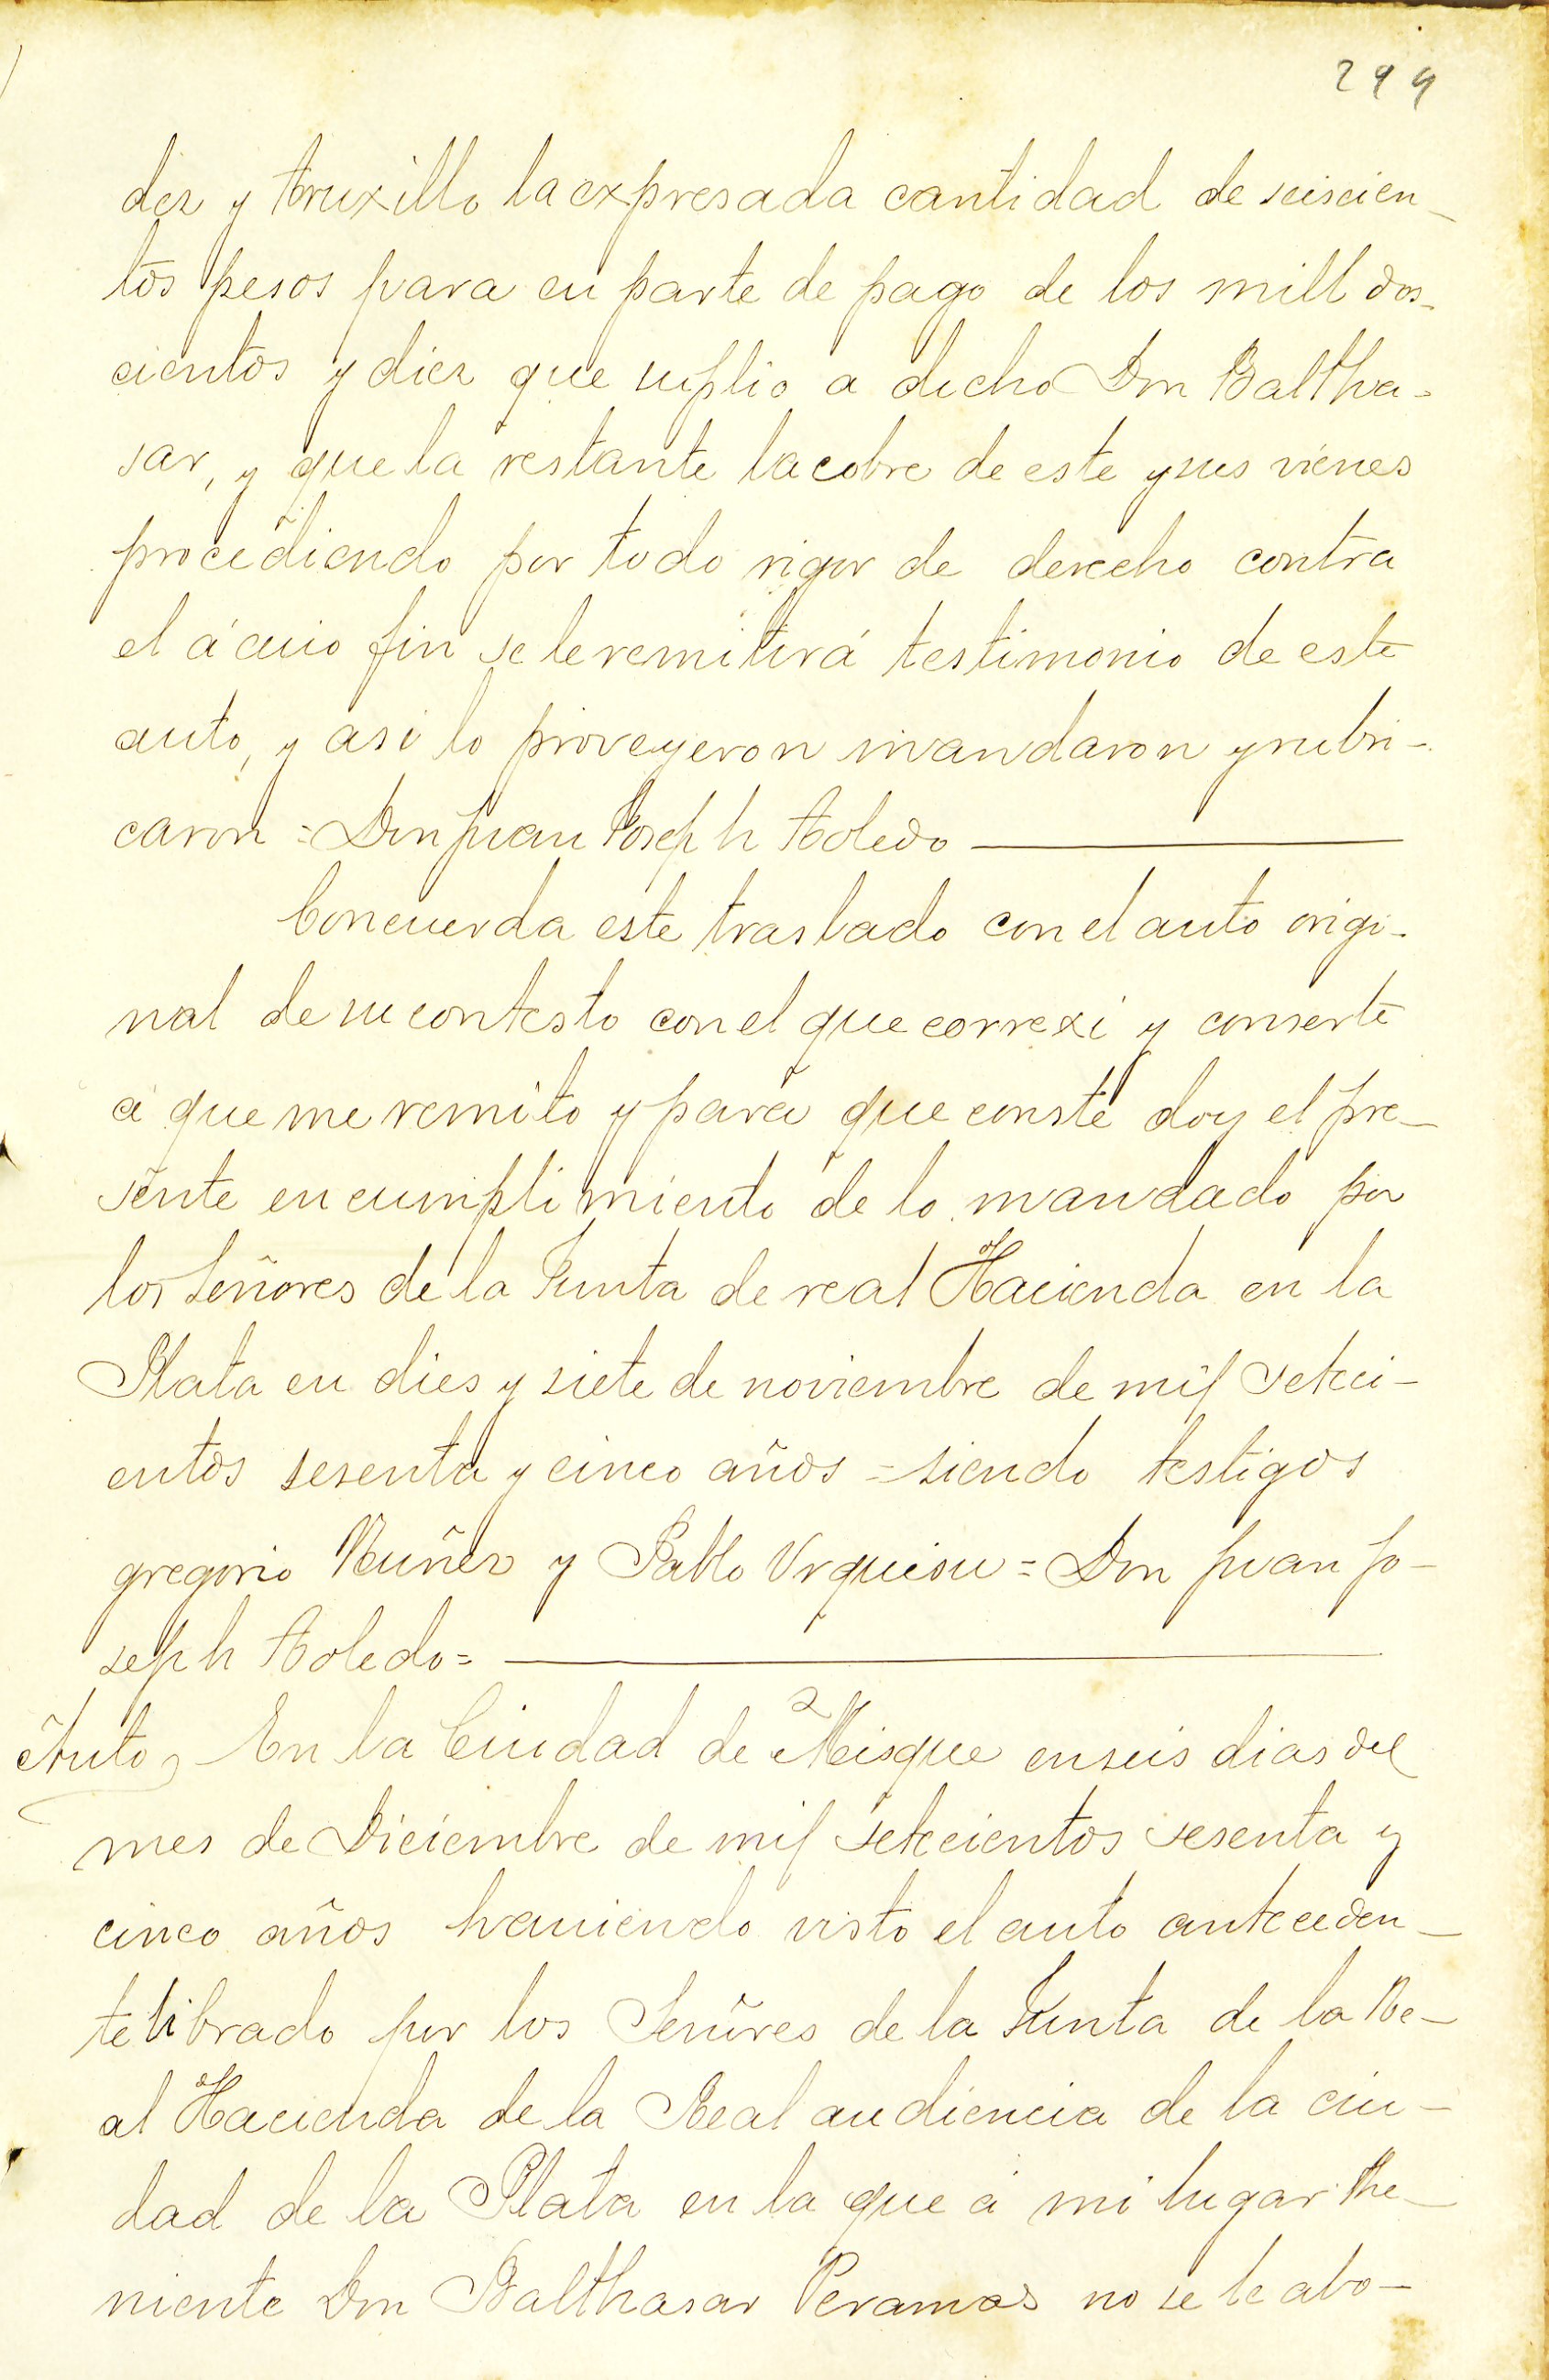 299
dez y truxillo la expresada cantidad de seiscien-
tos pesos para en parte de pago de los mill dos-
cientos y diez que suplio a dicho Don Baltha-
sar, y que la restante la cobre de este y sus vienes
procediendo por todo rigor de derecho contra
el á cuio fin se le remitirá testimonio de este
auto, y asi lo proveyeron mandaron y rubri-
caron = Don Juan Joseph Toledo
Concuerda este traslado con el auto origi-
nal de su contesto con el que correxi y conserte
a que me remito y para que conste doy el pre-
sente en cumplimiento de lo mandado por
los Señores de la Junta de real Hacienda en la
Plata en dies y siete de noviembre de mil seteci-
entos sesenta y cinco años = siendo testigos
gregorio Nuñez y Pablo Urquisu = Don Juan Jo-
seph Toledo =
Auto En la Ciudad de Misque en seis dias del
mes de Diciembre de mil setecientos sesenta y
cinco años haviendo visto el auto anteceden-
te librado por los Señores de la Junta de la Re-
al Hacienda de la Real audiencia de la ciu-
dad de la Plata en la que a mi lugar The-
niente Don Balthasar Peramas no se le abo-